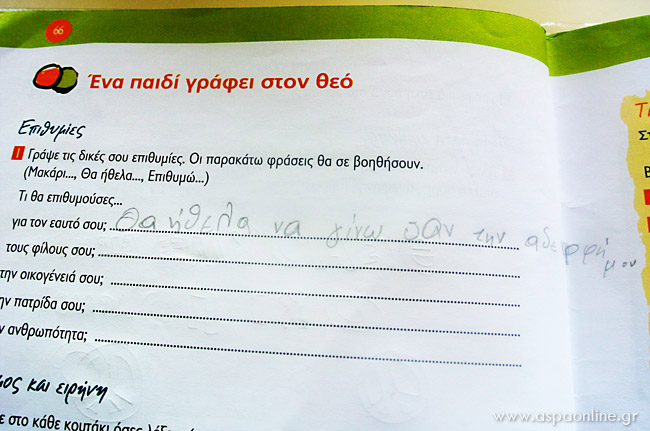 66
Ένα παιδί γράφει στον θεό
Επιθυμίες
1 Γράψε τις δικές σου επιθυμίες. Οι παρακάτω φράσεις θα σε βοηθήσουν.
(Μακάρι..., Θα ήθελα..., Επιθυμώ...)
Τι θα επιθυμούσες...
για τον εαυτό σου; Θα ήθελα να γίνω σαν την αδερφή μου
τους φίλους σου;
την οικογένειά σου;
ην πατρίδα σου;
ν ανθρωπότητα;
μος και ειρήνη
ε στο κάθε κουτάκι όσες
www.aspaonline.gr